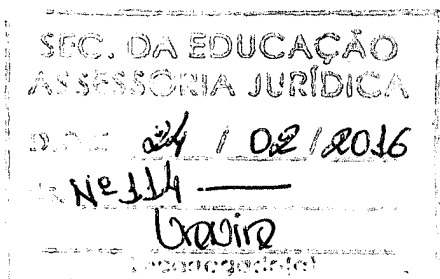 SEC. DA EDUCAÇÃO
ASSESSORIA JURÍDICA
D.O.E. 24 / 02 / 2016
Nº 114